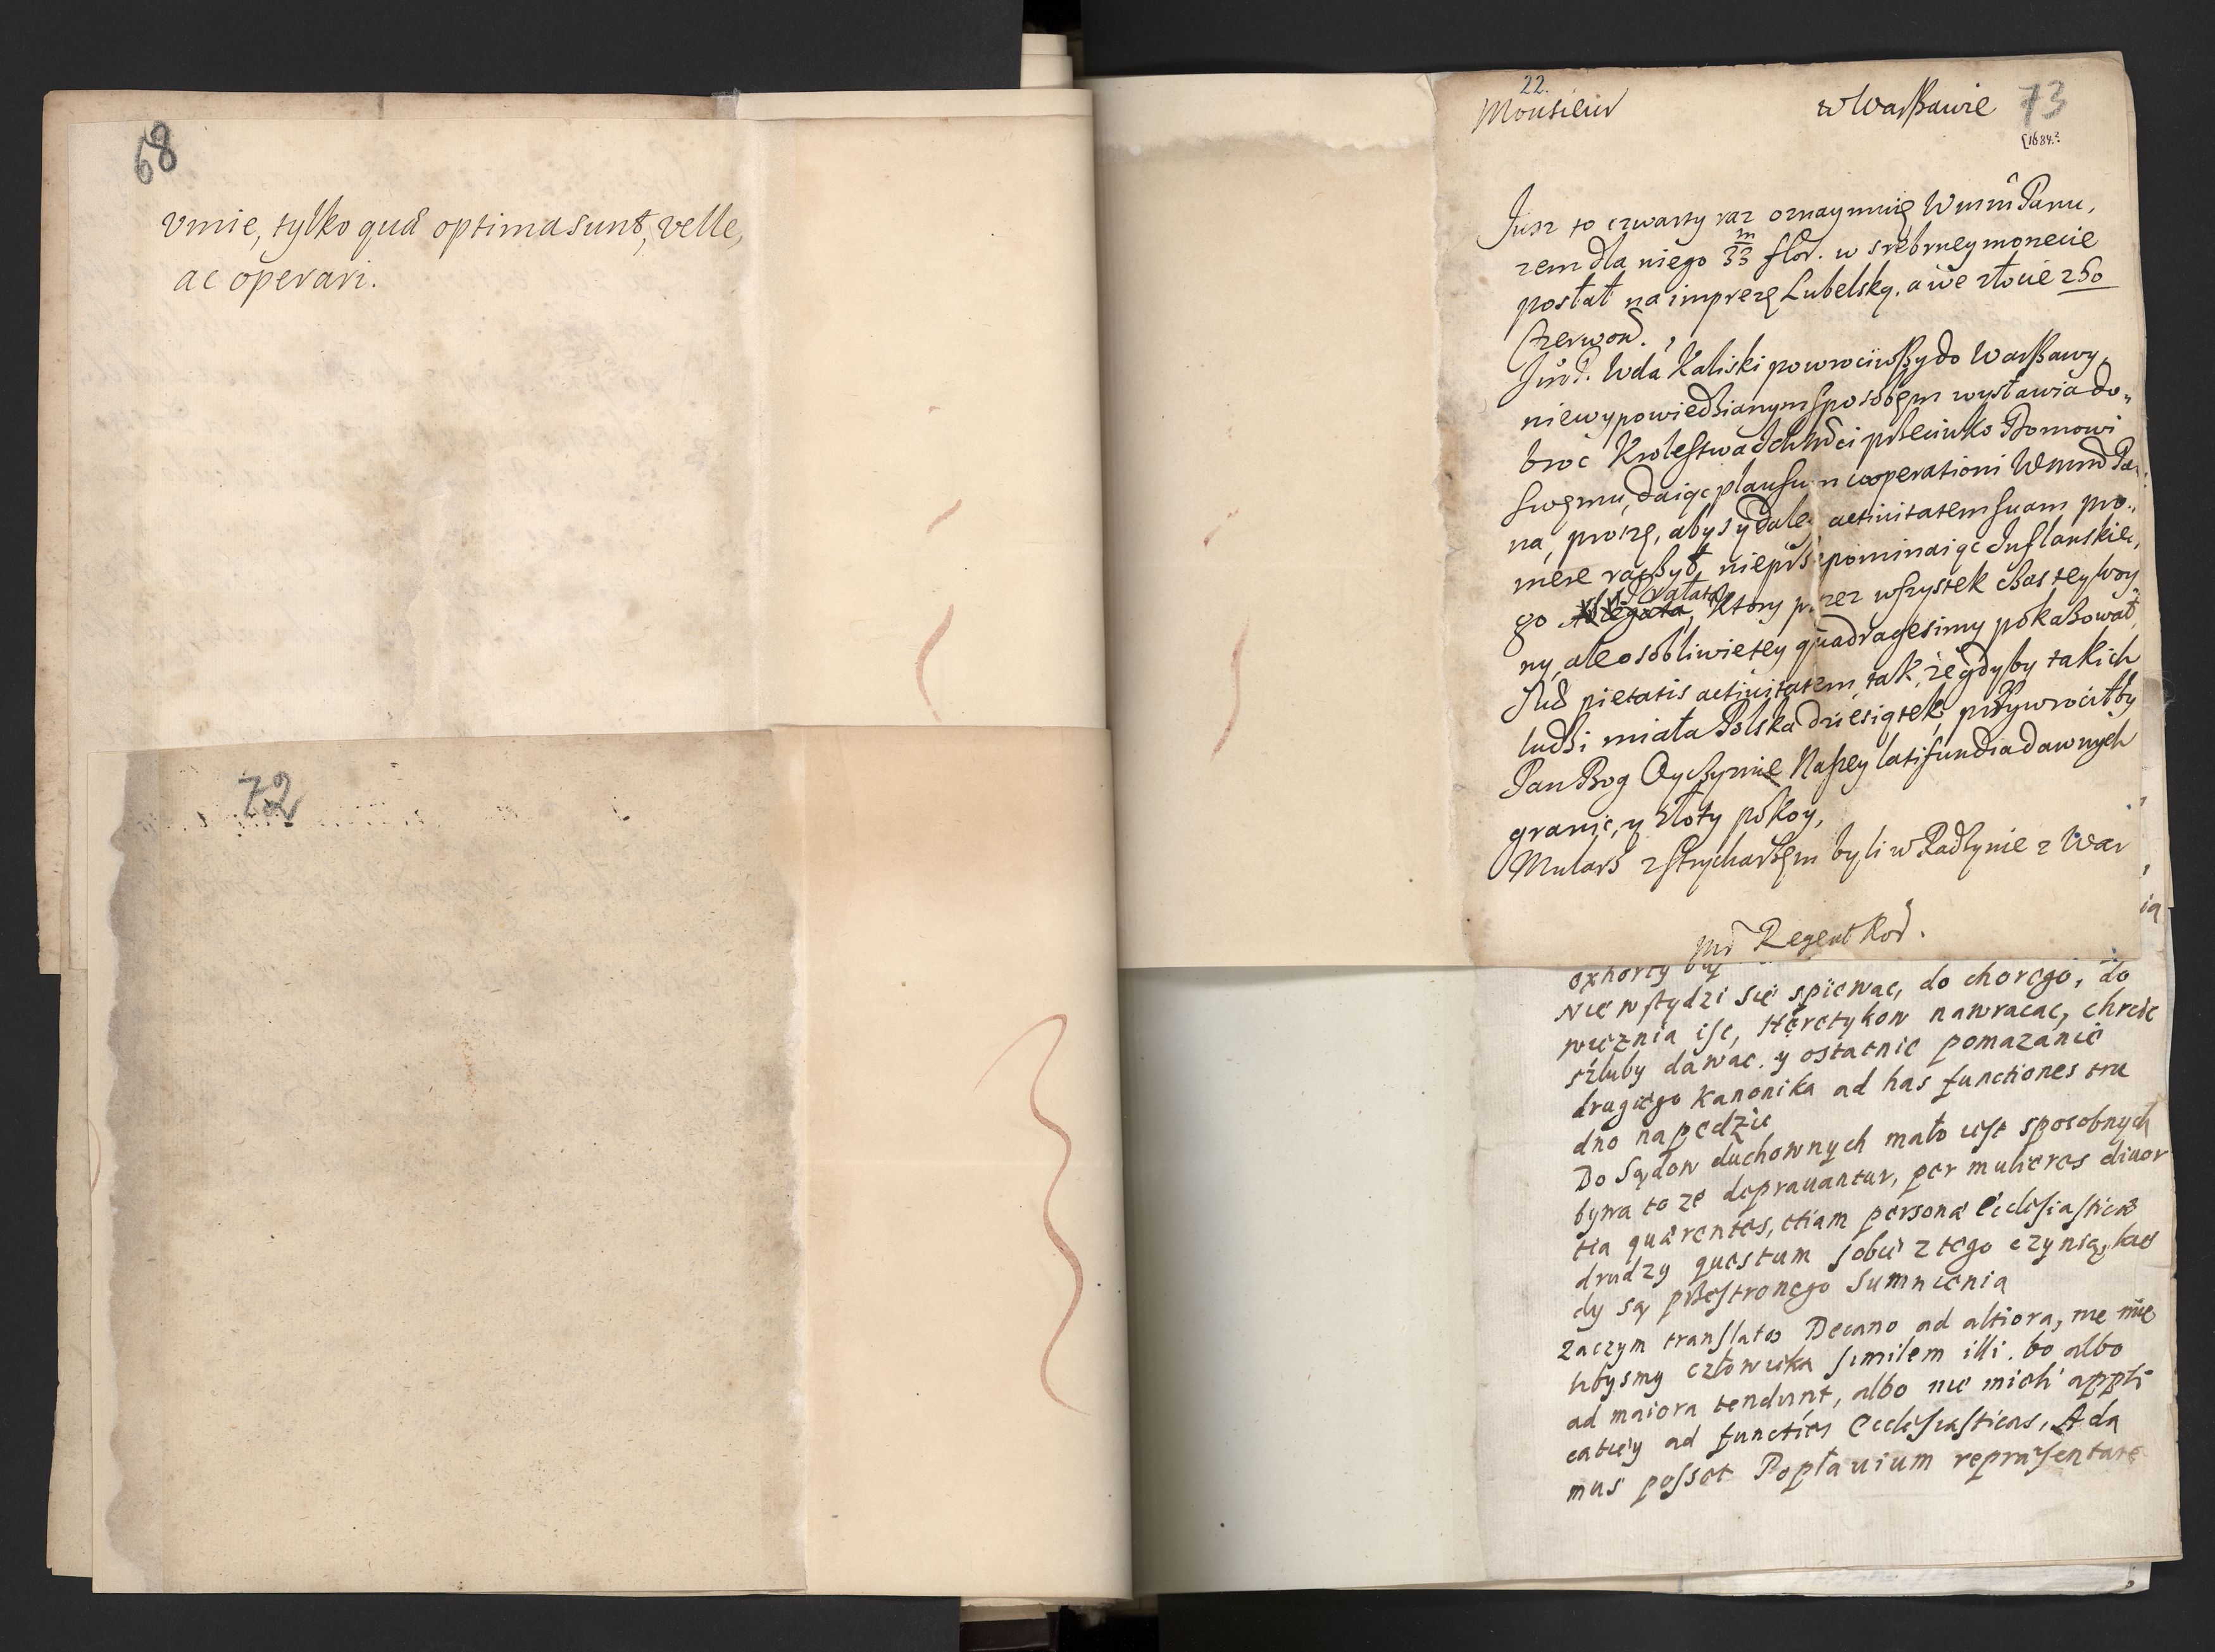 68
vmie, tylko quæ optima sunt, velle,
ac operari.
72
22.
Monsieur w Warßawie 73
[1684?
Jusz to czwarty raz oznaymuię Wmm Panu,
zem dla niego 33 m flor. w srebrney monecie
posłał na imprezę Lubelską, a we złocie 250
Czerwon.
Jmć P. Wda Kaliski powrociwßy do Warßawy,
niewypowiedzianym sposobem wystawia do„
broć Krolestwa Ichmći przeciwko Domowi
swemu, daiąc plausum cooperationi Wmm Pa„
na, proszę, abyś y daley activitatem suam pro„
mere raczył, nieprzepominaiąc Inflanskie„
go Prałata, ktory przez wszystek czas tey woy„
ny, ale osobliwie tey quadragesimy pokazował
suæ pietatis activitatem, tak, że gdyby takich
ludzi miała Polska dziesiątek, przywrociłby
Pan Bog Oyczyznie Naszey latifundia dawnych
granic, y złoty pokoy,
Mularz z strycharzem byli w Radzynie z War
Mr Regent Kor.
exhorty
Nie wstydzi się spiewac, do chorego, do
więznia isc, Heretykow nawracac, chrcic
szluby dawac. y ostatnie pomazanie
drugiego Kanonika ad has functiones tru
dno napędzic
Do Sądow duchownych mało iest sposobnych
bywa to ze deprauantur, per mulieres diuor
tia quærentes, etiam personæ Ecclesiasticæ
drudzy questum sobie z tego czynią, kie
dy są przestronego Sumnienia
Zaczym translato Decano ad altiora, nie mie
libysmy człowieka similem illi. bo albo
ad maiora tendunt, albo nie mieli appli
catiey ad functies Ecclesiasticas, Ada
mus posset Popłauium repræsentare
ią